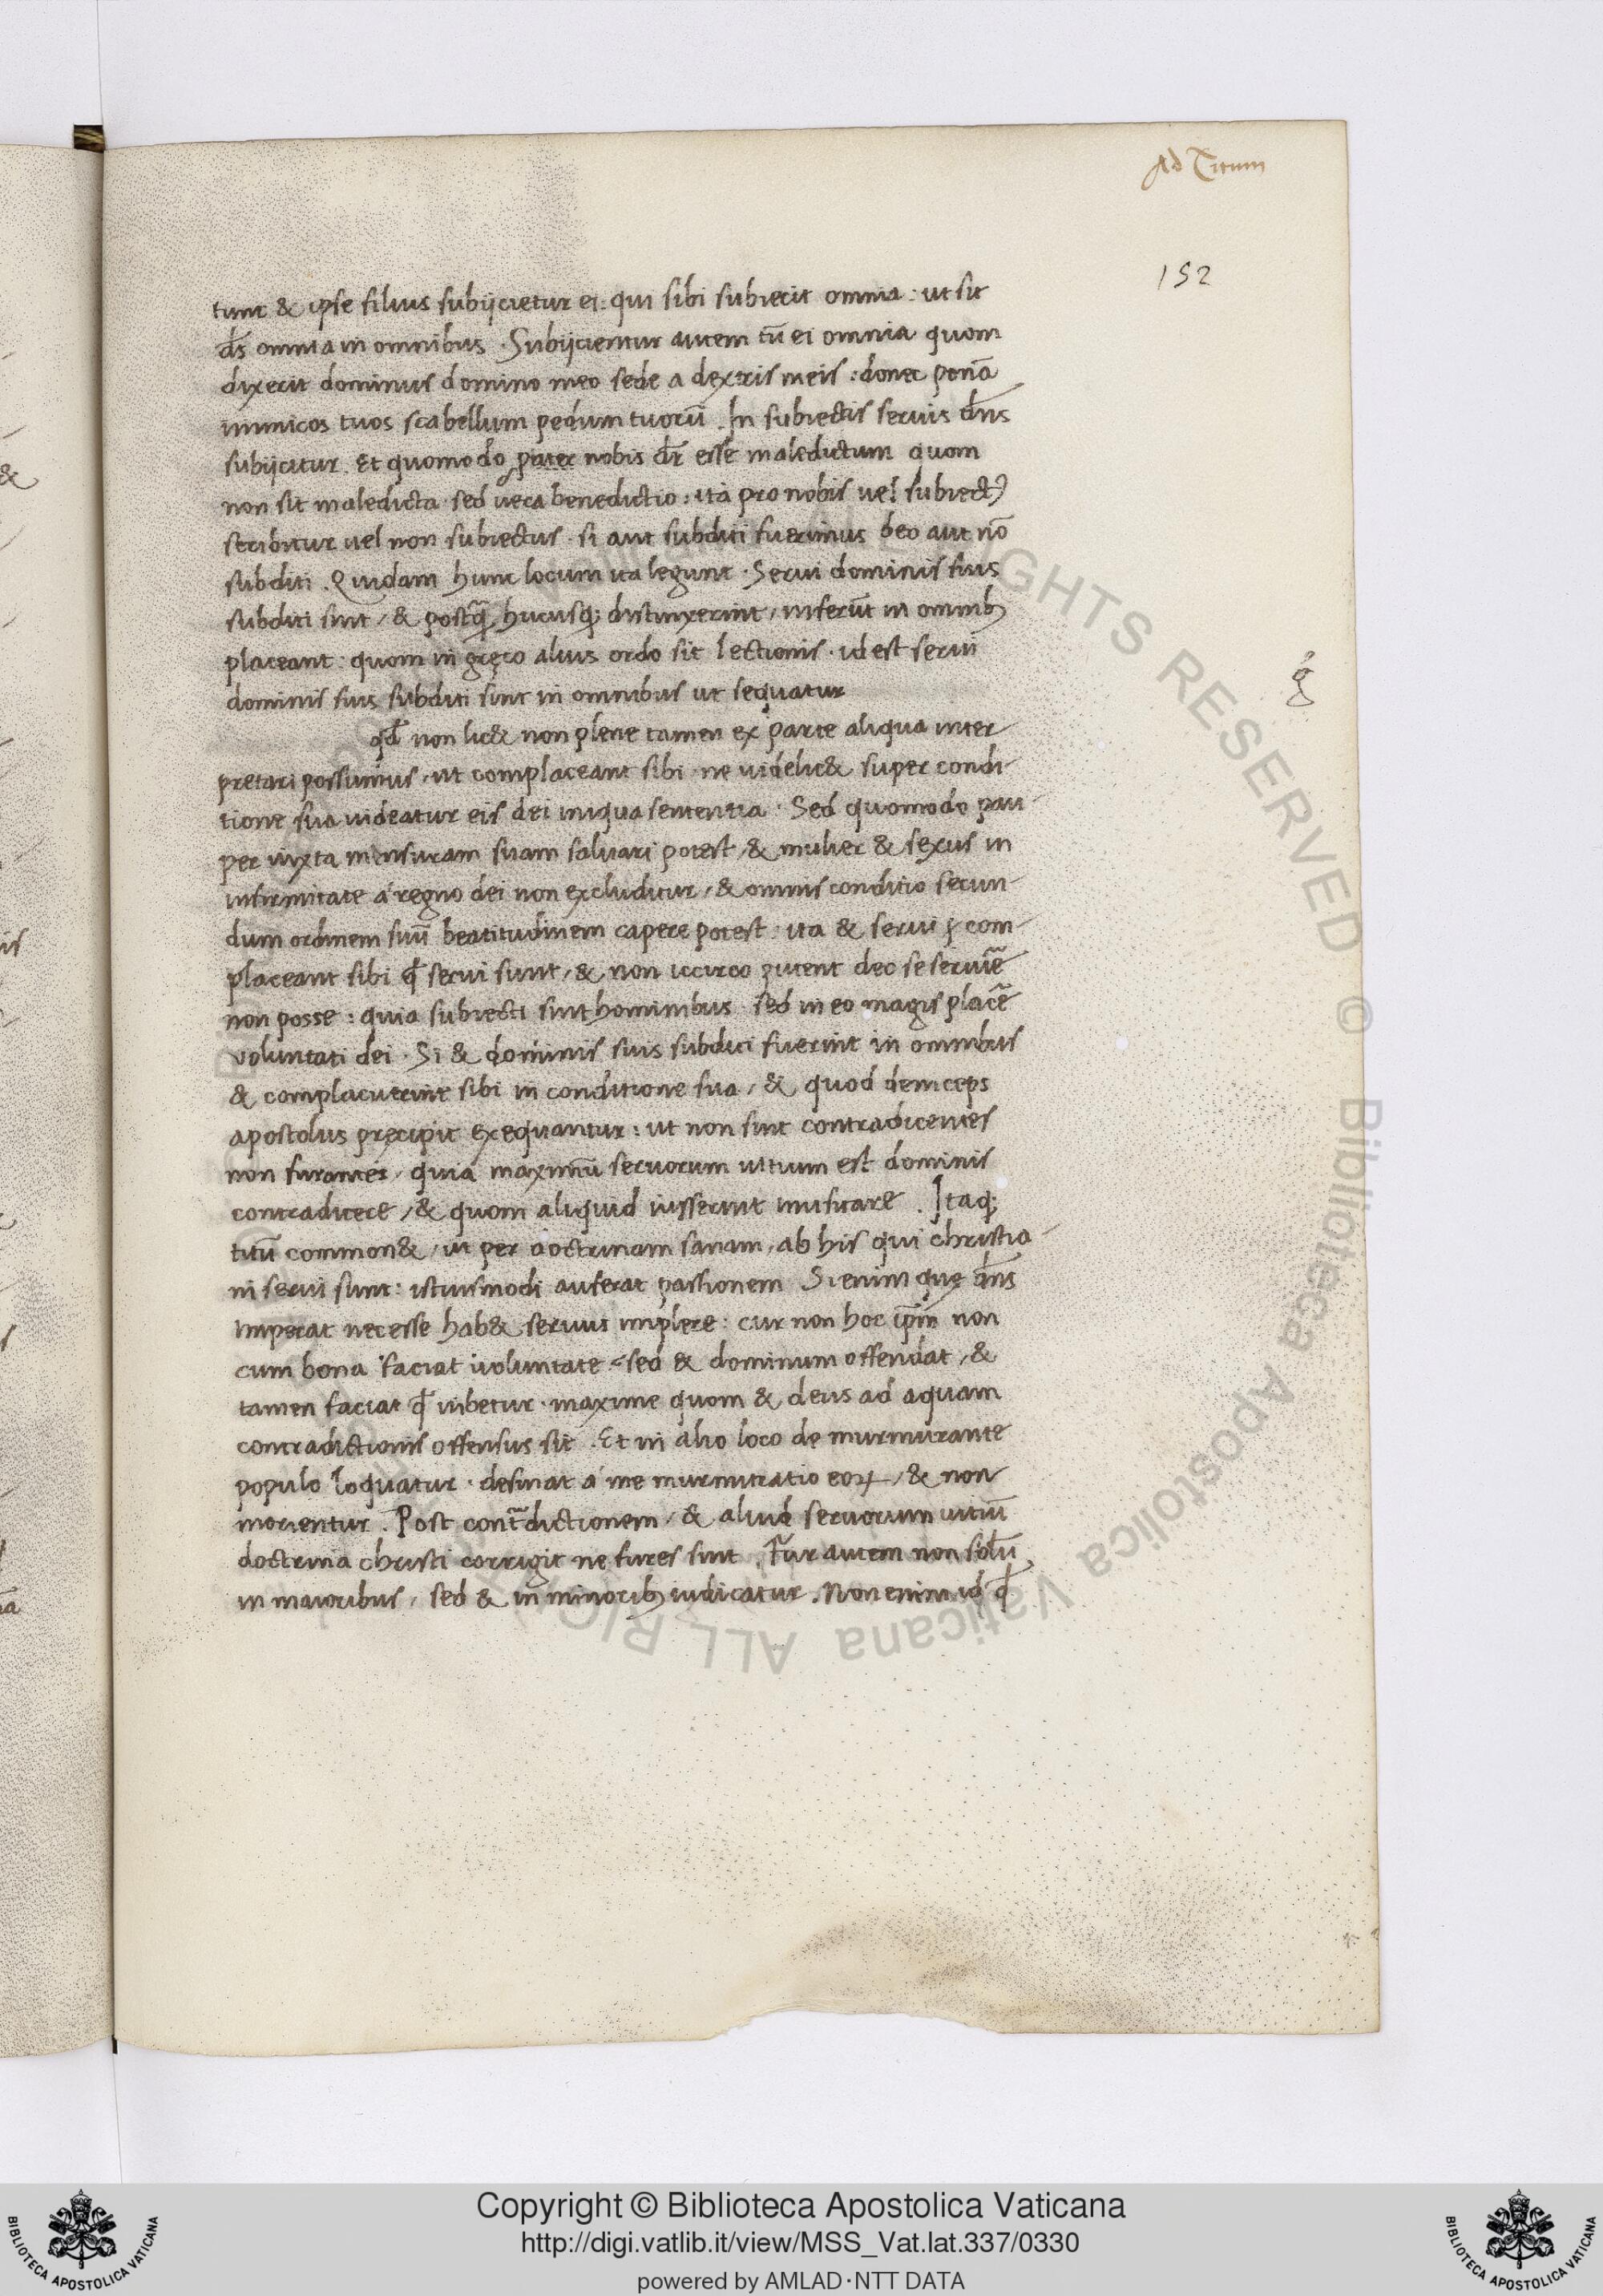 Ad Titum
152
tunc & ipse filius subijcietur ei: qui sibi subiecit omnia: ut sit
d̄s omnia in omnibus. Subijcientur autem tū ei omnia quom
dixerit dominus domino meo sede a dextris meis: donec ponā
inimicos tuos scabellum pedum tuorū. In subiectis seruis dn̄s
subijcitur. Et quomodo pater nobis dr̄ esse maledictum quom
non sit maledicta sed uera benedictio: ita pro nobis uel subiectꝰ
scribitur uel non subiectus. si aut subditi fuerimus deo aut nō
subditi. Quidam hunc locum ita legunt. Serui dominis suis
subditi sint, & postq̄ hucusq; distinxerint, inferūt in omnib;
placeant: quom in gręco alius ordo sit lectionis. id est serui
dominis suis subditi sint in omnibus ut sequatur
g̃
qd̄ non lic& non plene tamen ex parte aliqua inter
pretari possumus, ut complaceant sibi. ne uidelic& super condi-
tione sua uideatur eis dei iniqua sententia. Sed quomodo pau-
per iuxta mensuram suam saluari potest, & mulier & sexus in
infirmitate a regno dei non excluditur, & omnis conditio secun-
dum ordinem suū beatitudinem capere potest: ita & serui com-
placeant sibi qd̄ serui sunt, & non iccirco putent deo se seruiē
non posse: quia subiecti sint hominibus sed in eo magis placē
voluntati dei. Si & dominis suis subditi fuerint in omnibus
& complacuerint sibi in conditione sua, & quod deinceps
apostolus pręcipit exequantur: ut non sint contradicentes
non furantes, quia maximū seruorum uitium est dominis
contradicere, & quom aliquid iusserint musitare. Itaq;
titū common&, ut per doctrinam sanam, ab his qui christia-
ni serui sunt: istiusmodi auferat passionem Si enim quę dn̄s
imperat necesse hab& seruus implere: cur non hoc ip̄m non
cum bona faciat uoluntate sed & dominum offendat, &
tamen faciat qd̄ iubetur. maxime quom & deus ad aquam
contradictionis offensus sit. Et in alio loco de murmurante
populo loquatur. desinat a me murmuratio eoꝝ, & non
morientur. Post cont̄dictionem, & aliud seruorum uitiū
doctrina christi corrigit ne fures sint. Fur autem non solū
in maioribus, sed & in minorib; iudicatur. Non enim id qd̄
Copyright © Biblioteca Apostolica Vaticana
http://digi.vatlib.it/view/MSS_Vat.lat.337/0330
powered by AMLAD·NTT DATA